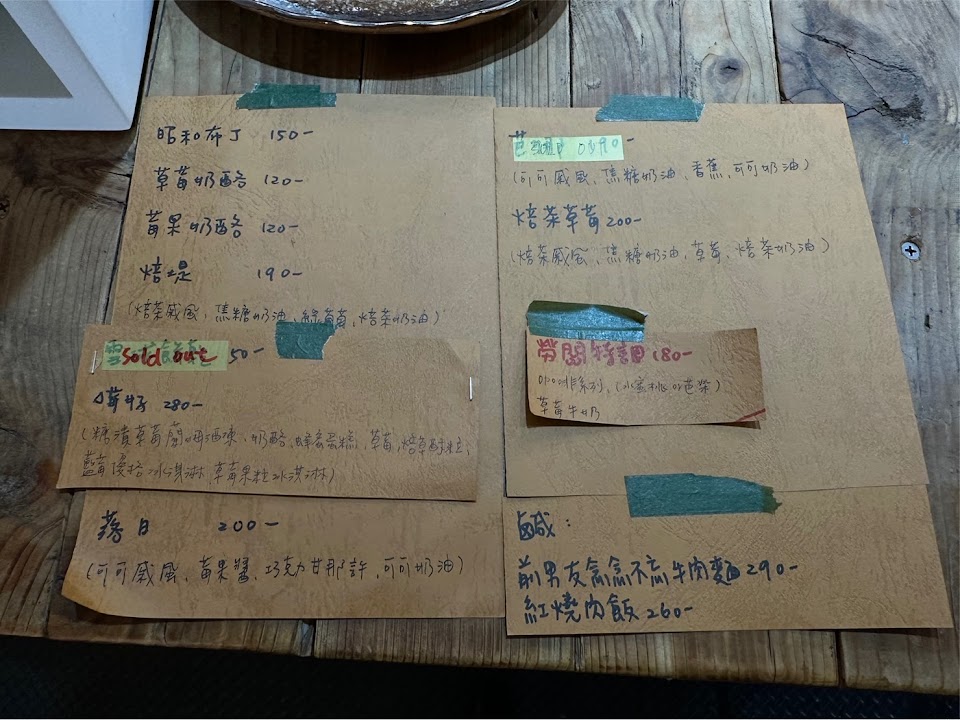 昭和布丁 150-
草莓奶酪 120-
莓果奶酪 120-
焙堤 190-
(焙茶戚風、焦糖奶油、綜莓莓、焙茶奶油)
sold out 50-
小莓好 280-
(糖漬草莓蘭姆酒凍、奶酪、蜂蜜蛋糕、草莓、焙草酥粒、
藍莓優格冰淇淋 草莓果粒冰淇淋)
落日 200-
(可可戚風、莓果醬、巧克力甘那許、可可奶油)
(可可戚風、焦糖奶油、香蕉、可可奶油)
焙茶草莓 200-
(焙茶戚風、焦糖奶油、草莓、焙茶奶油)
勞闆特調 180-
咖啡系列、(水蜜桃 or 芭樂)
草莓牛奶
鹹:
前男友念念不忘牛肉麵 290-
紅燒肉飯 260-